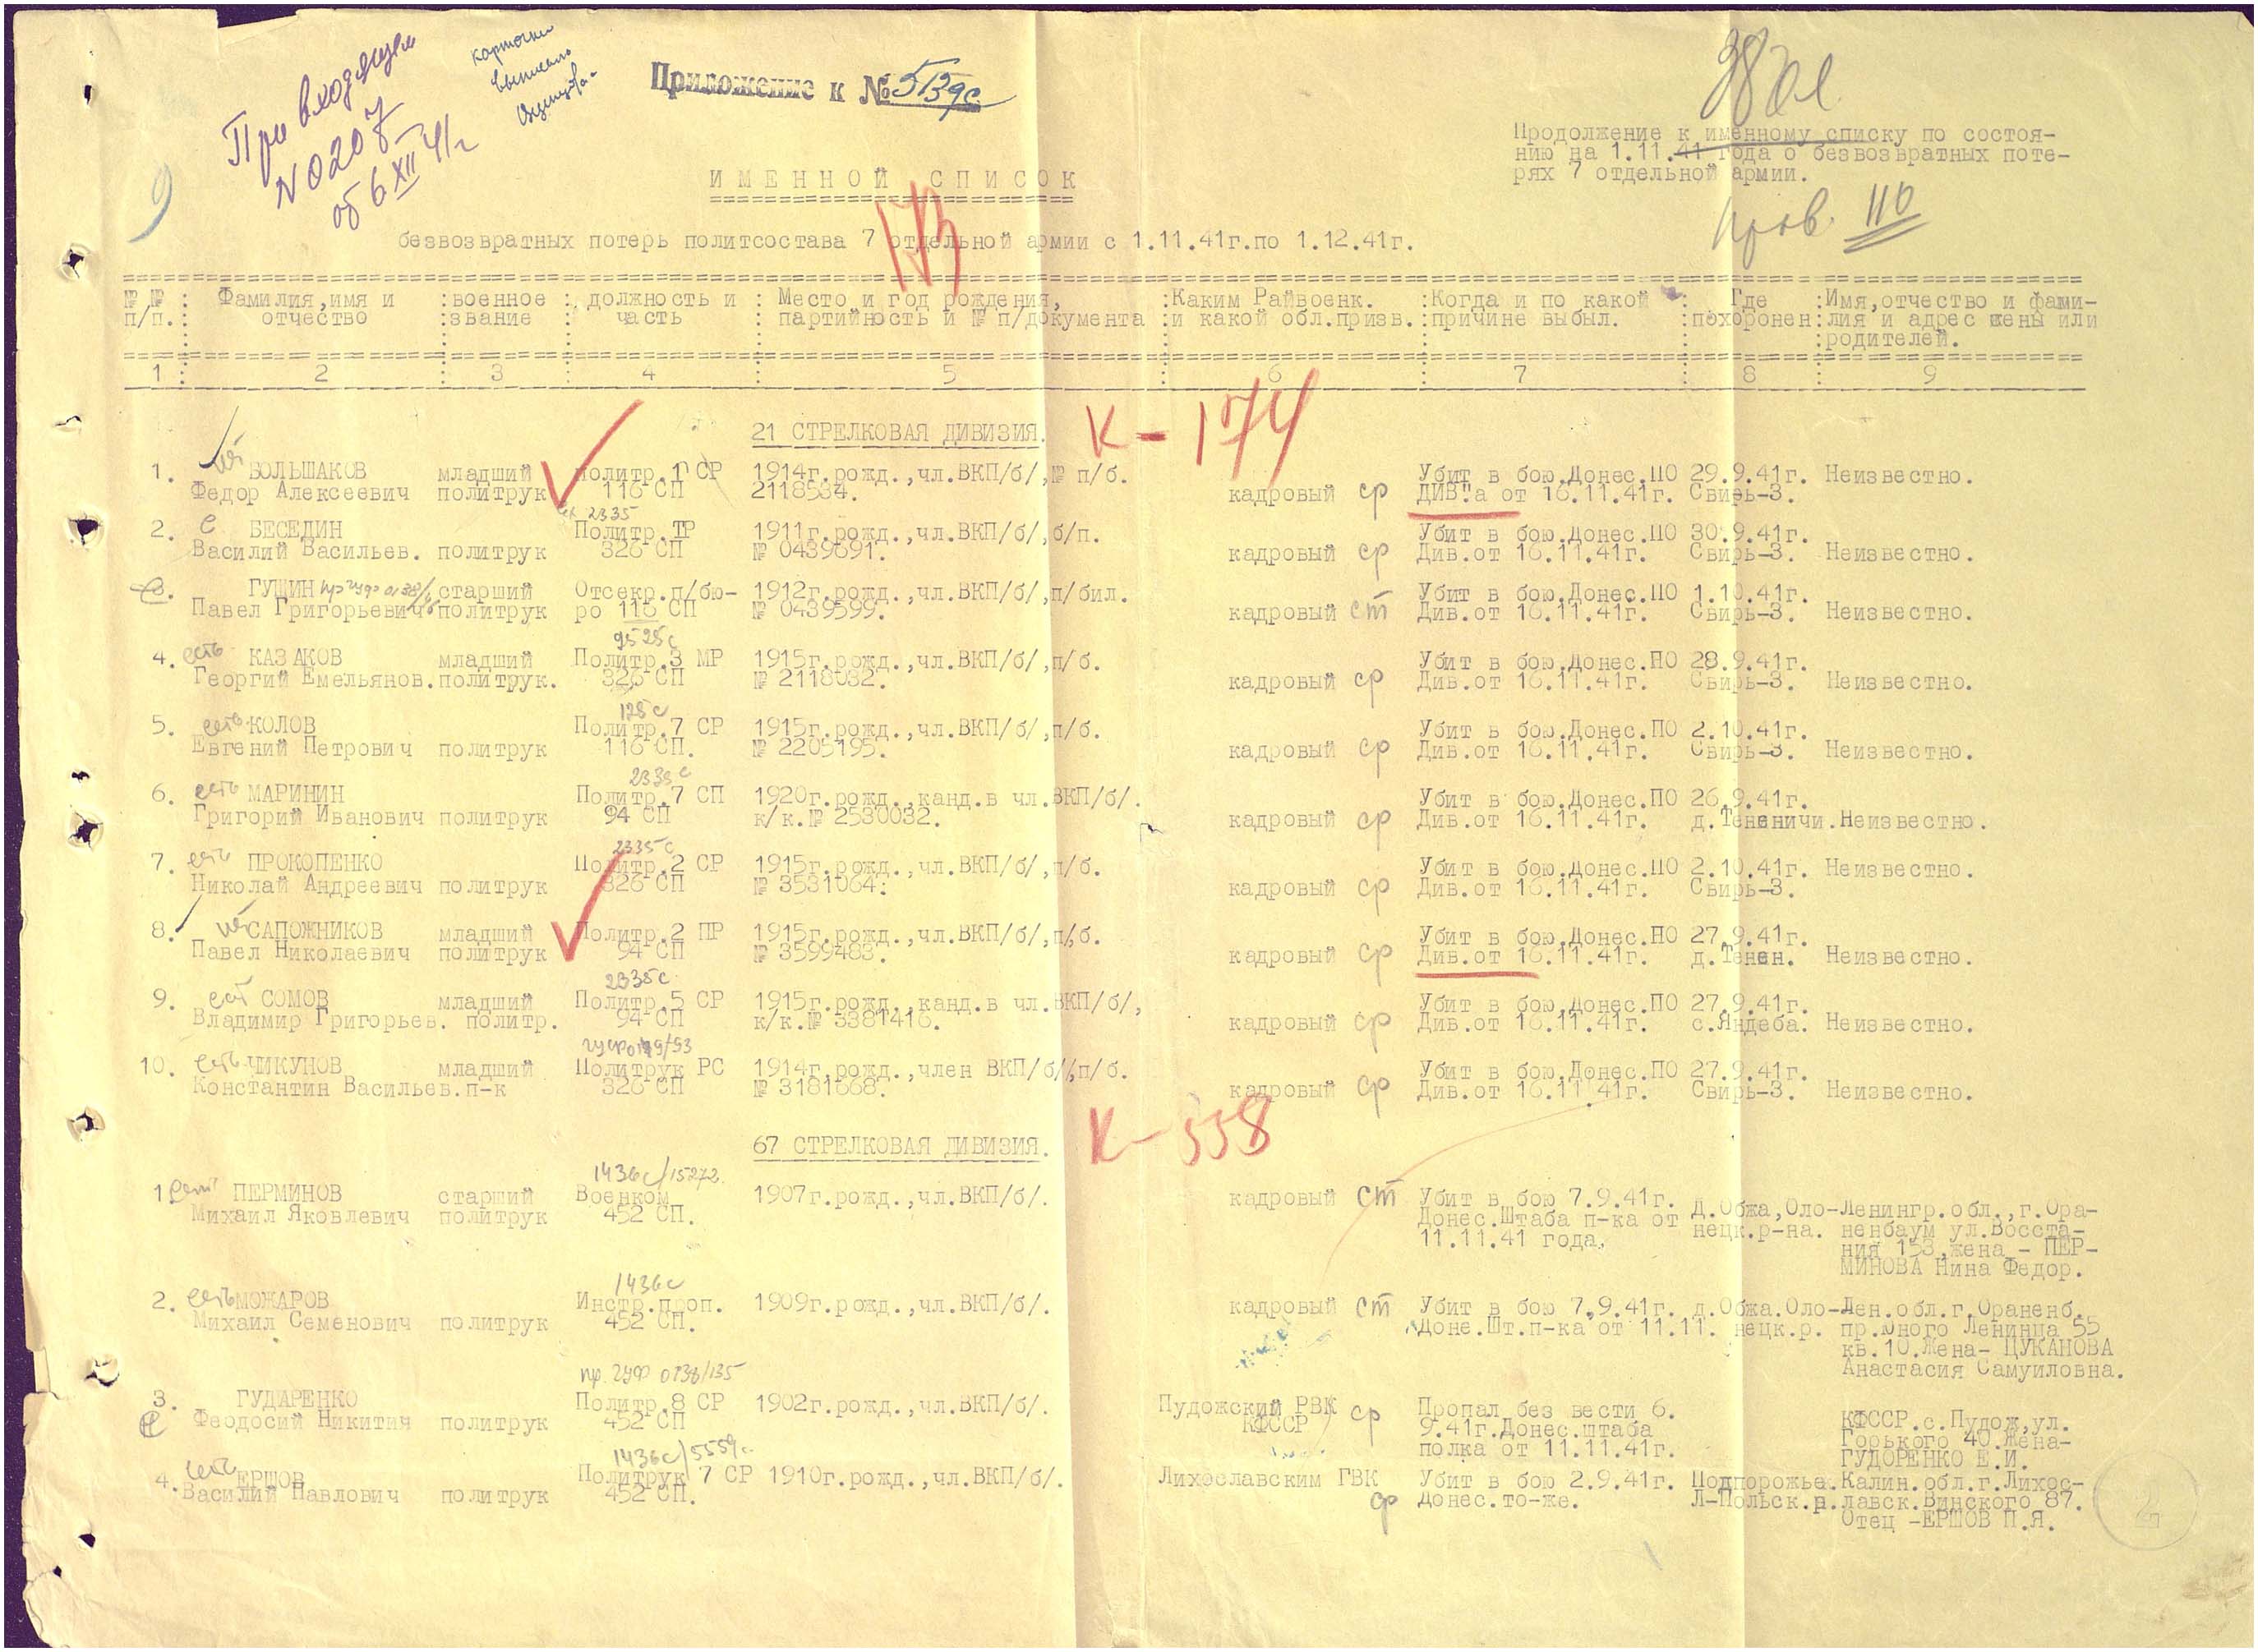 При входящем
№ 0207
об 6 XII 41г
карточки
выписаны
Приложение к № 5139с
9
Продолжение к именному списку по состоя-
нию на 1.11.41 года о безвозвратных поте-
рях 7 отдельной армии.
пров. 110
ИМЕННОЙ СПИСОК
173
безвозвратных потерь политсостава 7 отдельной армии с 1.11.41г.по 1.12.41г.
№№ : Фамилия,имя и :военное : должность и : Место и год рождения, :Каким Райвоенк. :Когда и по какой : Где :Имя,отчество и фами-
п/п.: отчество :звание : часть : партийность и № п/документа :и какой обл.призв.:причине выбыл. :похоронен:лия и адрес жены или
:родителей.
1 : 2 : 3 : 4 : 5 : 6 : 7 : 8 : 9
21 СТРЕЛКОВАЯ ДИВИЗИЯ. К-174
1. БОЛЬШАКОВ младший политр.1 СР 1914г.рожд.,чл.ВКП/б/,№ п/б. Убит в бою.Донес.ПО 29.9.41г. Неизвестно.
Федор Алексеевич политрук 116 СП 2118534. кадровый ср ДИВ"а от 16.11.41г. Свирь-3.
2335
2. е БЕСЕДИН Политр.ТР 1911г.рожд.,чл.ВКП/б/,б/п. Убит в бою.Донес.ПО 30.9.41г.
Василий Васильев. политрук 326 СП № 0439691. кадровый ср Див.от 16.11.41г. Свирь-3. Неизвестно.
3. ГУЩИН старший Отсекр.п/бю- 1912г.рожд.,чл.ВКП/б/,п/бил. Убит в бою.Донес.ПО 1.10.41г.
Павел Григорьевич политрук ро 116 СП № 0439599. кадровый ст Див.от 16.11.41г. Свирь-3. Неизвестно.
9525с
4. есть КАЗАКОВ младший Политр.3 МР 1915г.рожд.,чл.ВКП/б/,п/б. Убит в бою.Донес.ПО 28.9.41г.
Георгий Емельянов.политрук. 326 СП № 2118032. кадровый ср Див.от 16.11.41г. Свирь-3. Неизвестно.
128с
5. есть КОЛОВ Политр.7 СР 1915г.рожд.,чл.ВКП/б/,п/б. Убит в бою.Донес.ПО 2.10.41г.
Евгений Петрович политрук 116 СП. № 2205195. кадровый ср Див.от 16.11.41г. Свирь-3. Неизвестно.
2335с
6. есть МАРИНИН Политр.7 СП 1920г.рожд.,канд.в чл.ВКП/б/. Убит в бою.Донес.ПО 26.9.41г.
Григорий Иванович политрук 94 СП к/к.№ 2530032. кадровый ср Див.от 16.11.41г. д.Тененичи.Неизвестно.
2335с
7. есть ПРОКОПЕНКО Политр.2 СР 1915г.рожд.,чл.ВКП/б/,п/б. Убит в бою.Донес.ПО 2.10.41г. Неизвестно.
Николай Андреевич политрук 326 СП № 3531064. кадровый ср Див.от 16.11.41г. Свирь-3.
8. САПОЖНИКОВ младший Политр.2 ПР 1915г.рожд.,чл.ВКП/б/,п/б. Убит в бою.Донес.ПО 27.9.41г.
Павел Николаевич политрук 94 СП № 3599483. кадровый ср Див.от 16.11.41г. д.Тенен. Неизвестно.
2335с
9. есть СОМОВ младший Политр.5 СР 1915г.рожд.,канд.в чл.ВКП/б/, Убит в бою.Донес.ПО 27.9.41г.
Владимир Григорьев. политр. 94 СП к/к.№ 3381416. кадровый ср Див.от 16.11.41г. с.Яндеба. Неизвестно.
10. есть ЧИКУНОВ младший Политрук РС 1914г.рожд.,член ВКП/б/,п/б. Убит в бою.Донес.ПО 27.9.41г.
Константин Васильев.п-к 326 СП № 3181668. кадровый ср Див.от 16.11.41г. Свирь-3. Неизвестно.
67 СТРЕЛКОВАЯ ДИВИЗИЯ. К-538
1436с/15272
1. есть ПЕРМИНОВ старший Военком 1907г.рожд.,чл.ВКП/б/. кадровый ст Убит в бою 7.9.41г. Д.Обжа,Оло-Ленингр.обл.,г.Ора-
Михаил Яковлевич политрук 452 СП. Донес.Штаба п-ка от нецк.р-на. ненбаум ул.Восста-
11.11.41 года. ния 153,жена - ПЕР-
МИНОВА Нина Федор.
1436с
2. есть МОЖАРОВ Инстр.проп. 1909г.рожд.,чл.ВКП/б/. кадровый ст Убит в бою 7.9.41г. д.Обжа.Оло-Лен.обл.г.Ораненб.
Михаил Семенович политрук 452 СП. Доне.Шт.п-ка от 11.11. нецк.р. пр.Юного Ленинца 55
кв.10.Жена- ЦУКАНОВА
Анастасия Самуиловна.
пр. ГУФ 0138/135
3. ГУДАРЕНКО Политр.8 СР 1902г.рожд.,чл.ВКП/б/. Пудожский РВК ср Пропал без вести 6. КФССР.с.Пудож,ул.
Феодосий Никитич политрук 452 СП КФССР 9.41г.Донес.штаба Горького 40.Жена-
полка от 11.11.41г. ГУДОРЕНКО Е.И.
1436с/5559с
4. есть ЕРШОВ Политрук 7 СР 1910г.рожд.,чл.ВКП/б/. Лихославским ГВК Убит в бою 2.9.41г. Подпорожье.Калин.обл.г.Лихос-
Василий Павлович политрук 452 СП. ср Донес.то-же. Л-Польск.р.лавск.Винского 87.
Отец -ЕРШОВ П.Я.